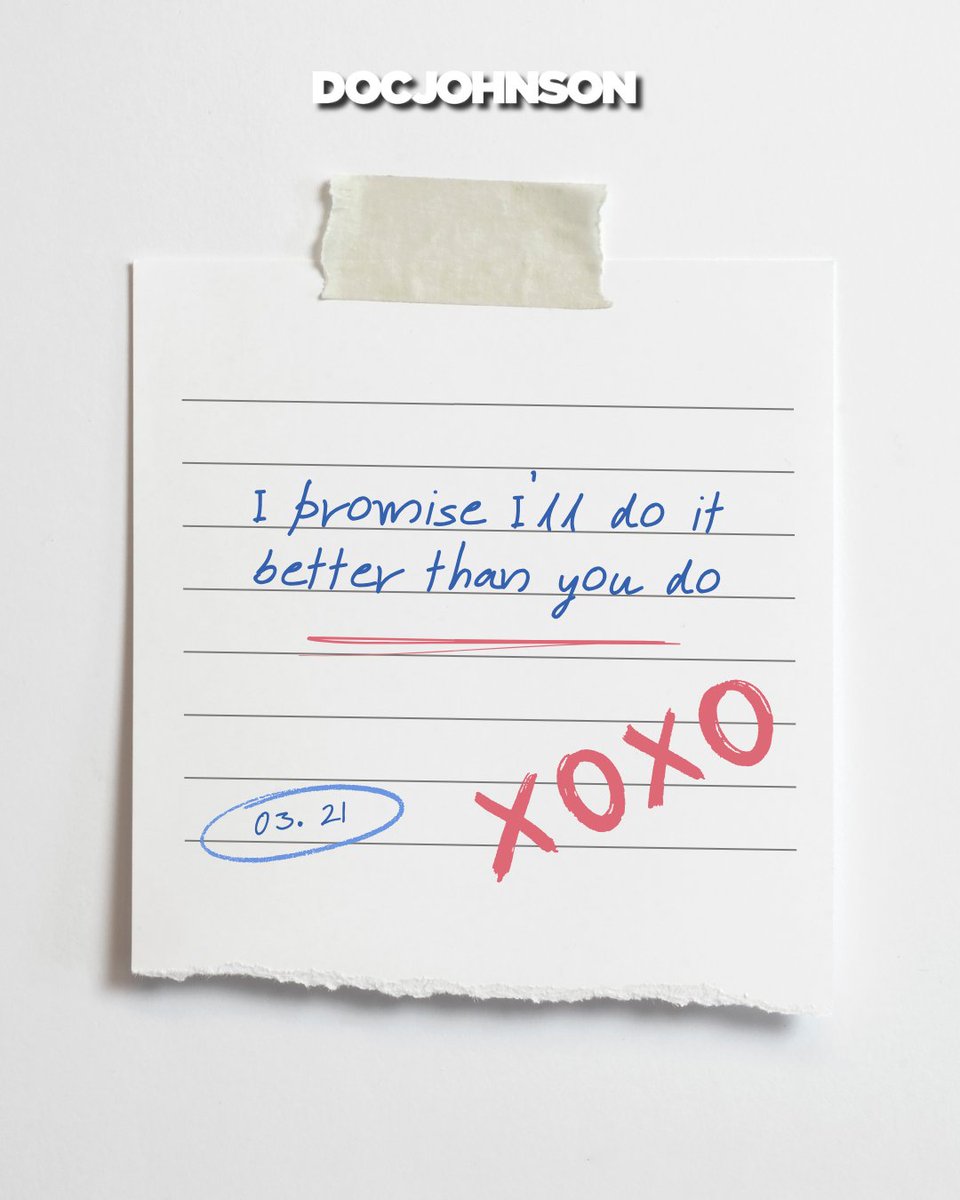 DOCJOHNSON
I promise I'll do it
better than you do
XOXO
03. 21